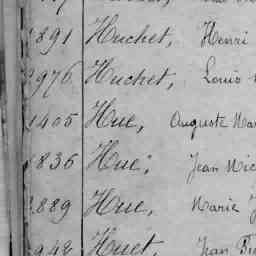 891 Huchet, Henri
976 Huchet, Louis
1405 Hue, Auguste Mar
836 Hue, Jean Nic
889 Hue, Marie
948 Huet, Jean